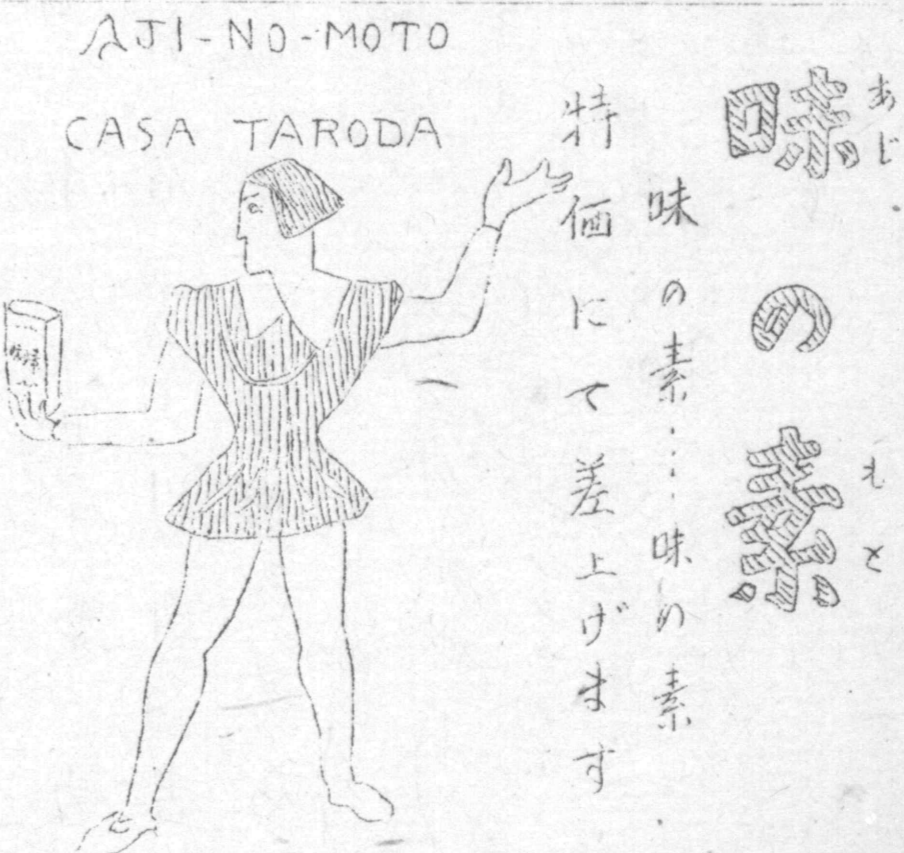 AJI-NO-MOTO
CASA TARODA
味の素
あじ
もと
味の素・・・味の素
特価にて差上げます